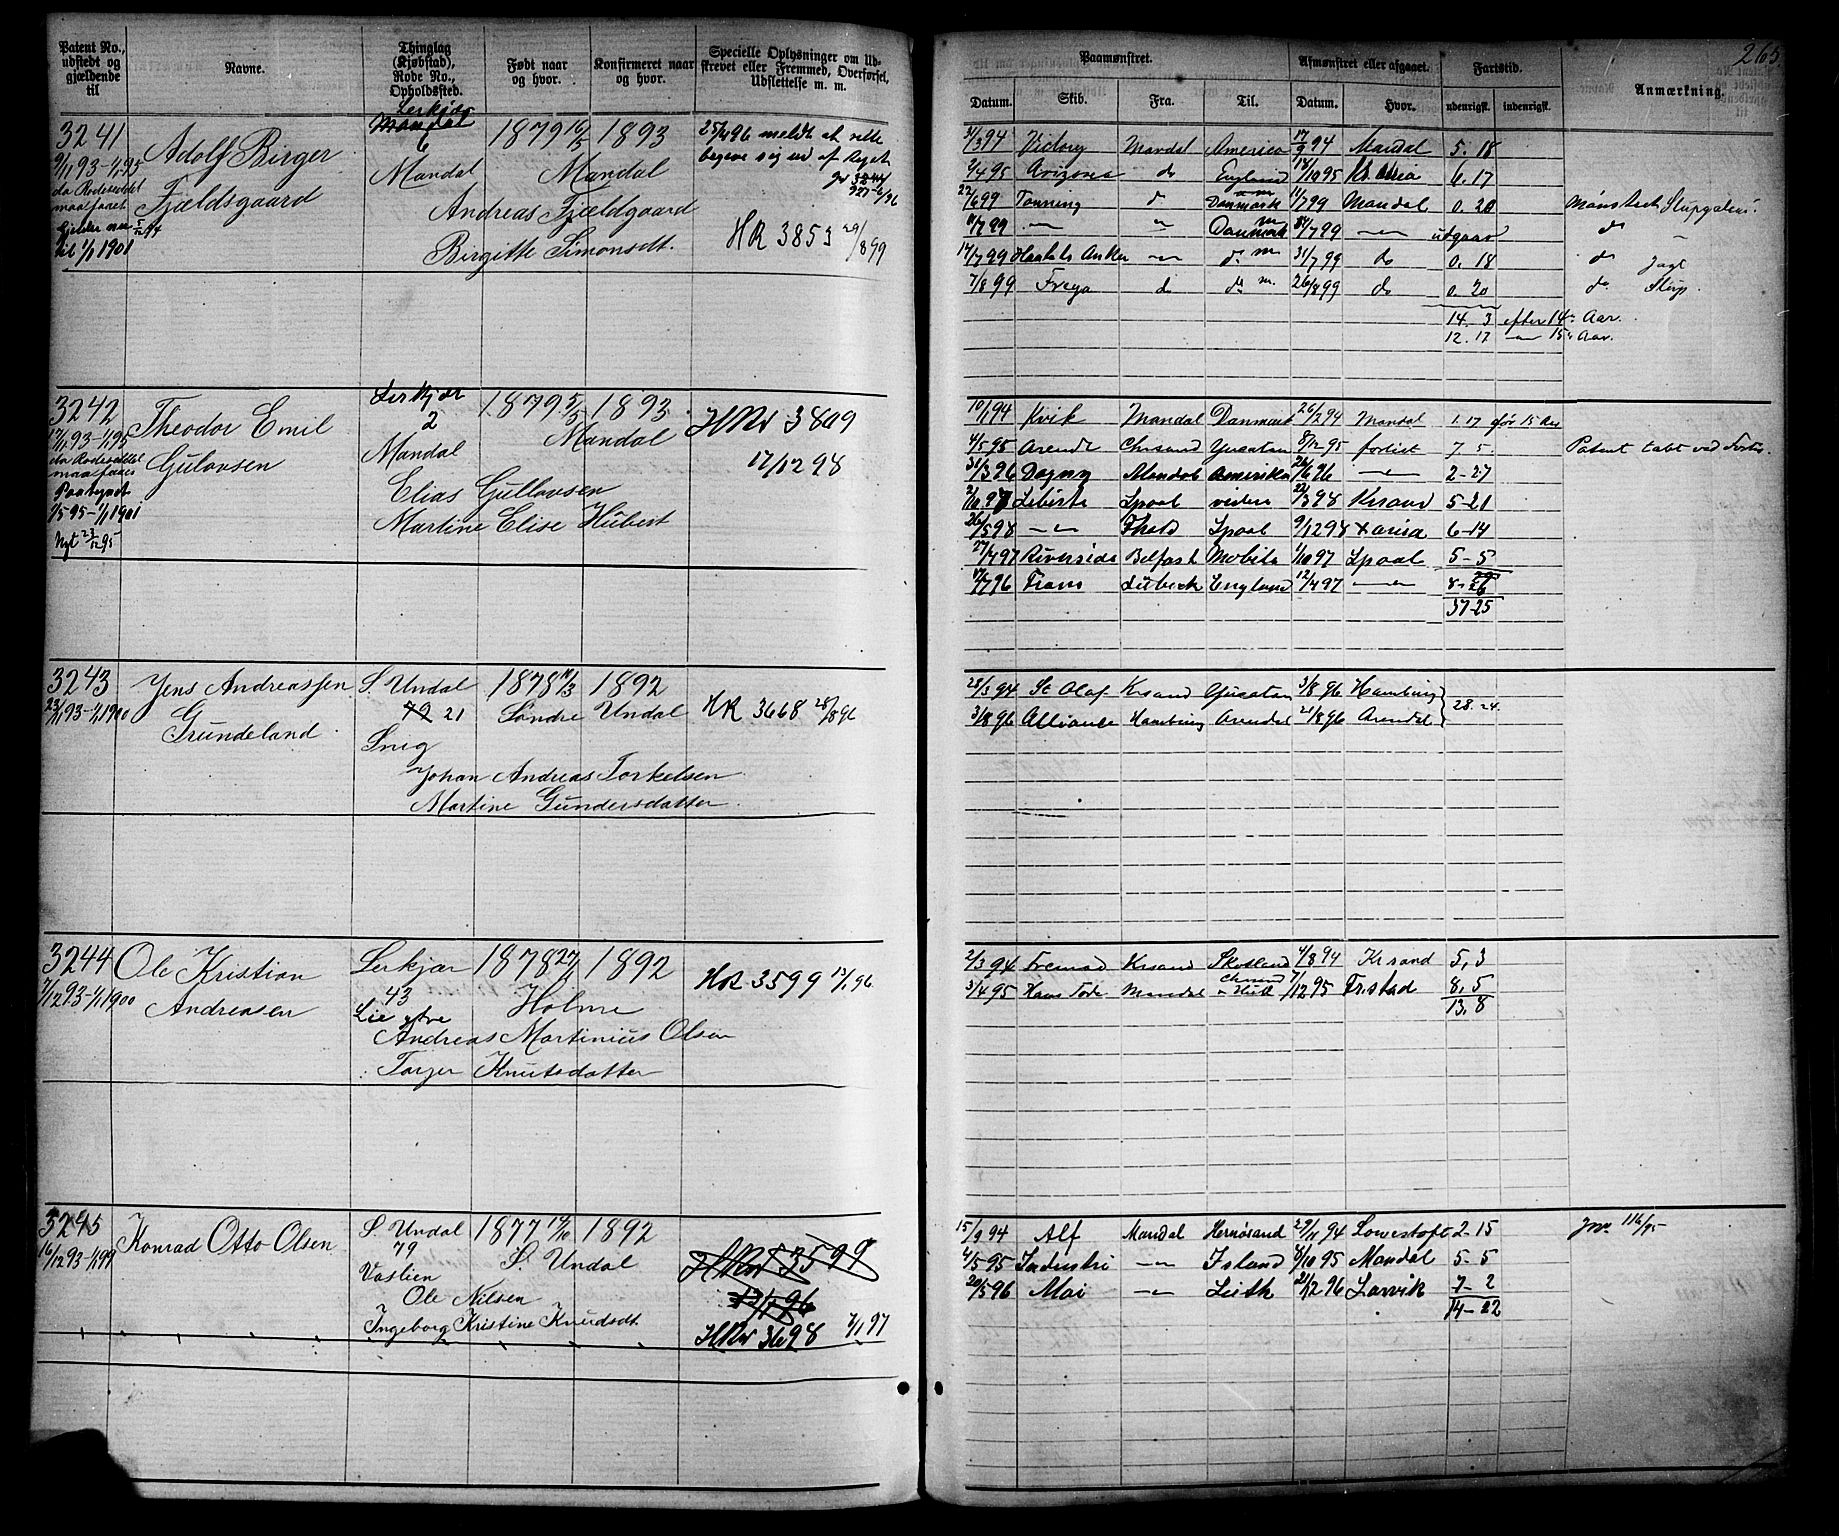 265.
Patent No., udstedt og gjældende til
Navne.
Thinglag (Kjøbstad), Rode No., Opholdssted.
Født naar og hvor.
Konfirmeret naar og hvor.
Specielle Oplysninger om Udskrevet eller Fremmed, Overførsel, Udslettelse m. m.
Paamønstret.
Datum. Skib. Fra. Til.
Afmønstret eller afgaaet.
Datum. Hvor.
Fartstid.
udenrigsk. indenrigsk.
Anmærkning.
3241
9/11 93-1/1 95
til 1/1 1901
Adolf Birger
Fjeldsgaard
Lerkjær
Mandal
6
Mandal
1879 16/5
1893
Mandal
Andreas Fjeldgaard
Birgitte Simonsdt.
25/4 96 meldt at ville
begive sig ud af Riget
HR 3853 29/8 99
31/3 94 Victory Mandal America 17/9 94 Mandal 5. 18
2/4 95 do England 18/10 95 6. 17
22/6 99 Tonning do Danmark 11/7 99 Mandal 0. 20
11/7 99 — " Danmark /7 99 — utgaar do
17/7 99 Anker — do 31/7 99 do 0. 18 do Jagt
7/8 99 Freya do do 26/8 99 do 0. 20 do Slup.
14. 3 efter 14 Aar.
12. 17 — 15 Aar.
3242
17/11 93-1/1 95
Paategnet
2/5 95-1/1 1901
Nyt 23/12 95
Theodor Emil
Gulovsen
Lerkjær
2
Mandal
1879 5/5
1893
Mandal
Elias Gullovsen
Martine Elise Hubert
HRv 3809
17/12 98
10/1 94 Kvik Mandal Danmark 26/2 94 Mandal 1. 17 før 15 Aar
4/5 95 Arende Chrsand Yucatan 8/12 95 forlist 7 5 Patent tabt ved Forlis.
31/3 96 Dagny Mandal Amerika /6 96 — 2-27
2/10 97 Lpool 22/3 98 Krsand 5-21
26/5 98 — Lpool 9/12 98 Xania 6-14
27/4 97 Riverside Belfast Mobile 1/10 97 Lpool 5-5
17/7 96 Lübeck England 12/4 97 — 8-26
37-25
3243
23/11 93-1/1 1900
Jens Andreassen
Grundeland
S. Undal
79 21
Snig
1878 17/3
1892
Søndre Undal
Johan Andreas Torkelsen
Martine Gundersdatter.
HR 3668 28/8 96
28/3 94 St Olaf Krsand Yucatan 3/8 96 Hamburg
3/8 96 Alliance Hamburg Arendal 21/8 96 Arendal 28. 24.
3244
7/12 93-1/1 1900
Ole Kristian
Andreasen
Lerkjær
43
Lie
1878 27/11
1892
Holme
Andreas Martinius Olsen
Torjer Knutsdatter
HR 3599 13/1 96
2/3 94 Fremad Krsand Skotland 4/8 94 Krsand 5, 3
3/4 95 Hans Tode Mandal 7/12 95 Frstad 8, 5
13, 8
3245
16/12 93-1/1 99
Konrad Otto Olsen
S. Undal
79
1877 14/10
1892
S. Undal
Ole Nilsen
Ingeborg Kristine Knudsdt
HRv 3599
13/1 96
HRv 3698 7/1 97
15/9 94 Alf Mandal Hernøsand 29/11 94 Lowestoft 2-15
4/5 95 Industri — Island 8/10 95 Mandal 5-5
20/5 96 Mai — Leith 21/12 96 Larvik 7-2
14-22